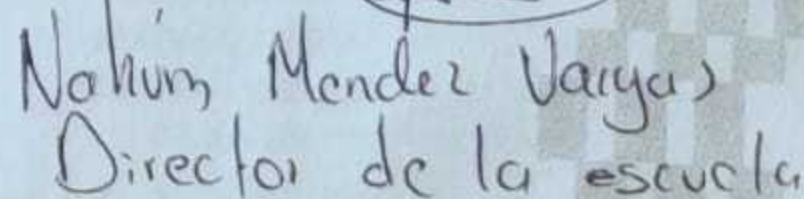 Nahúm Mendez Vargas
Director de la escuela